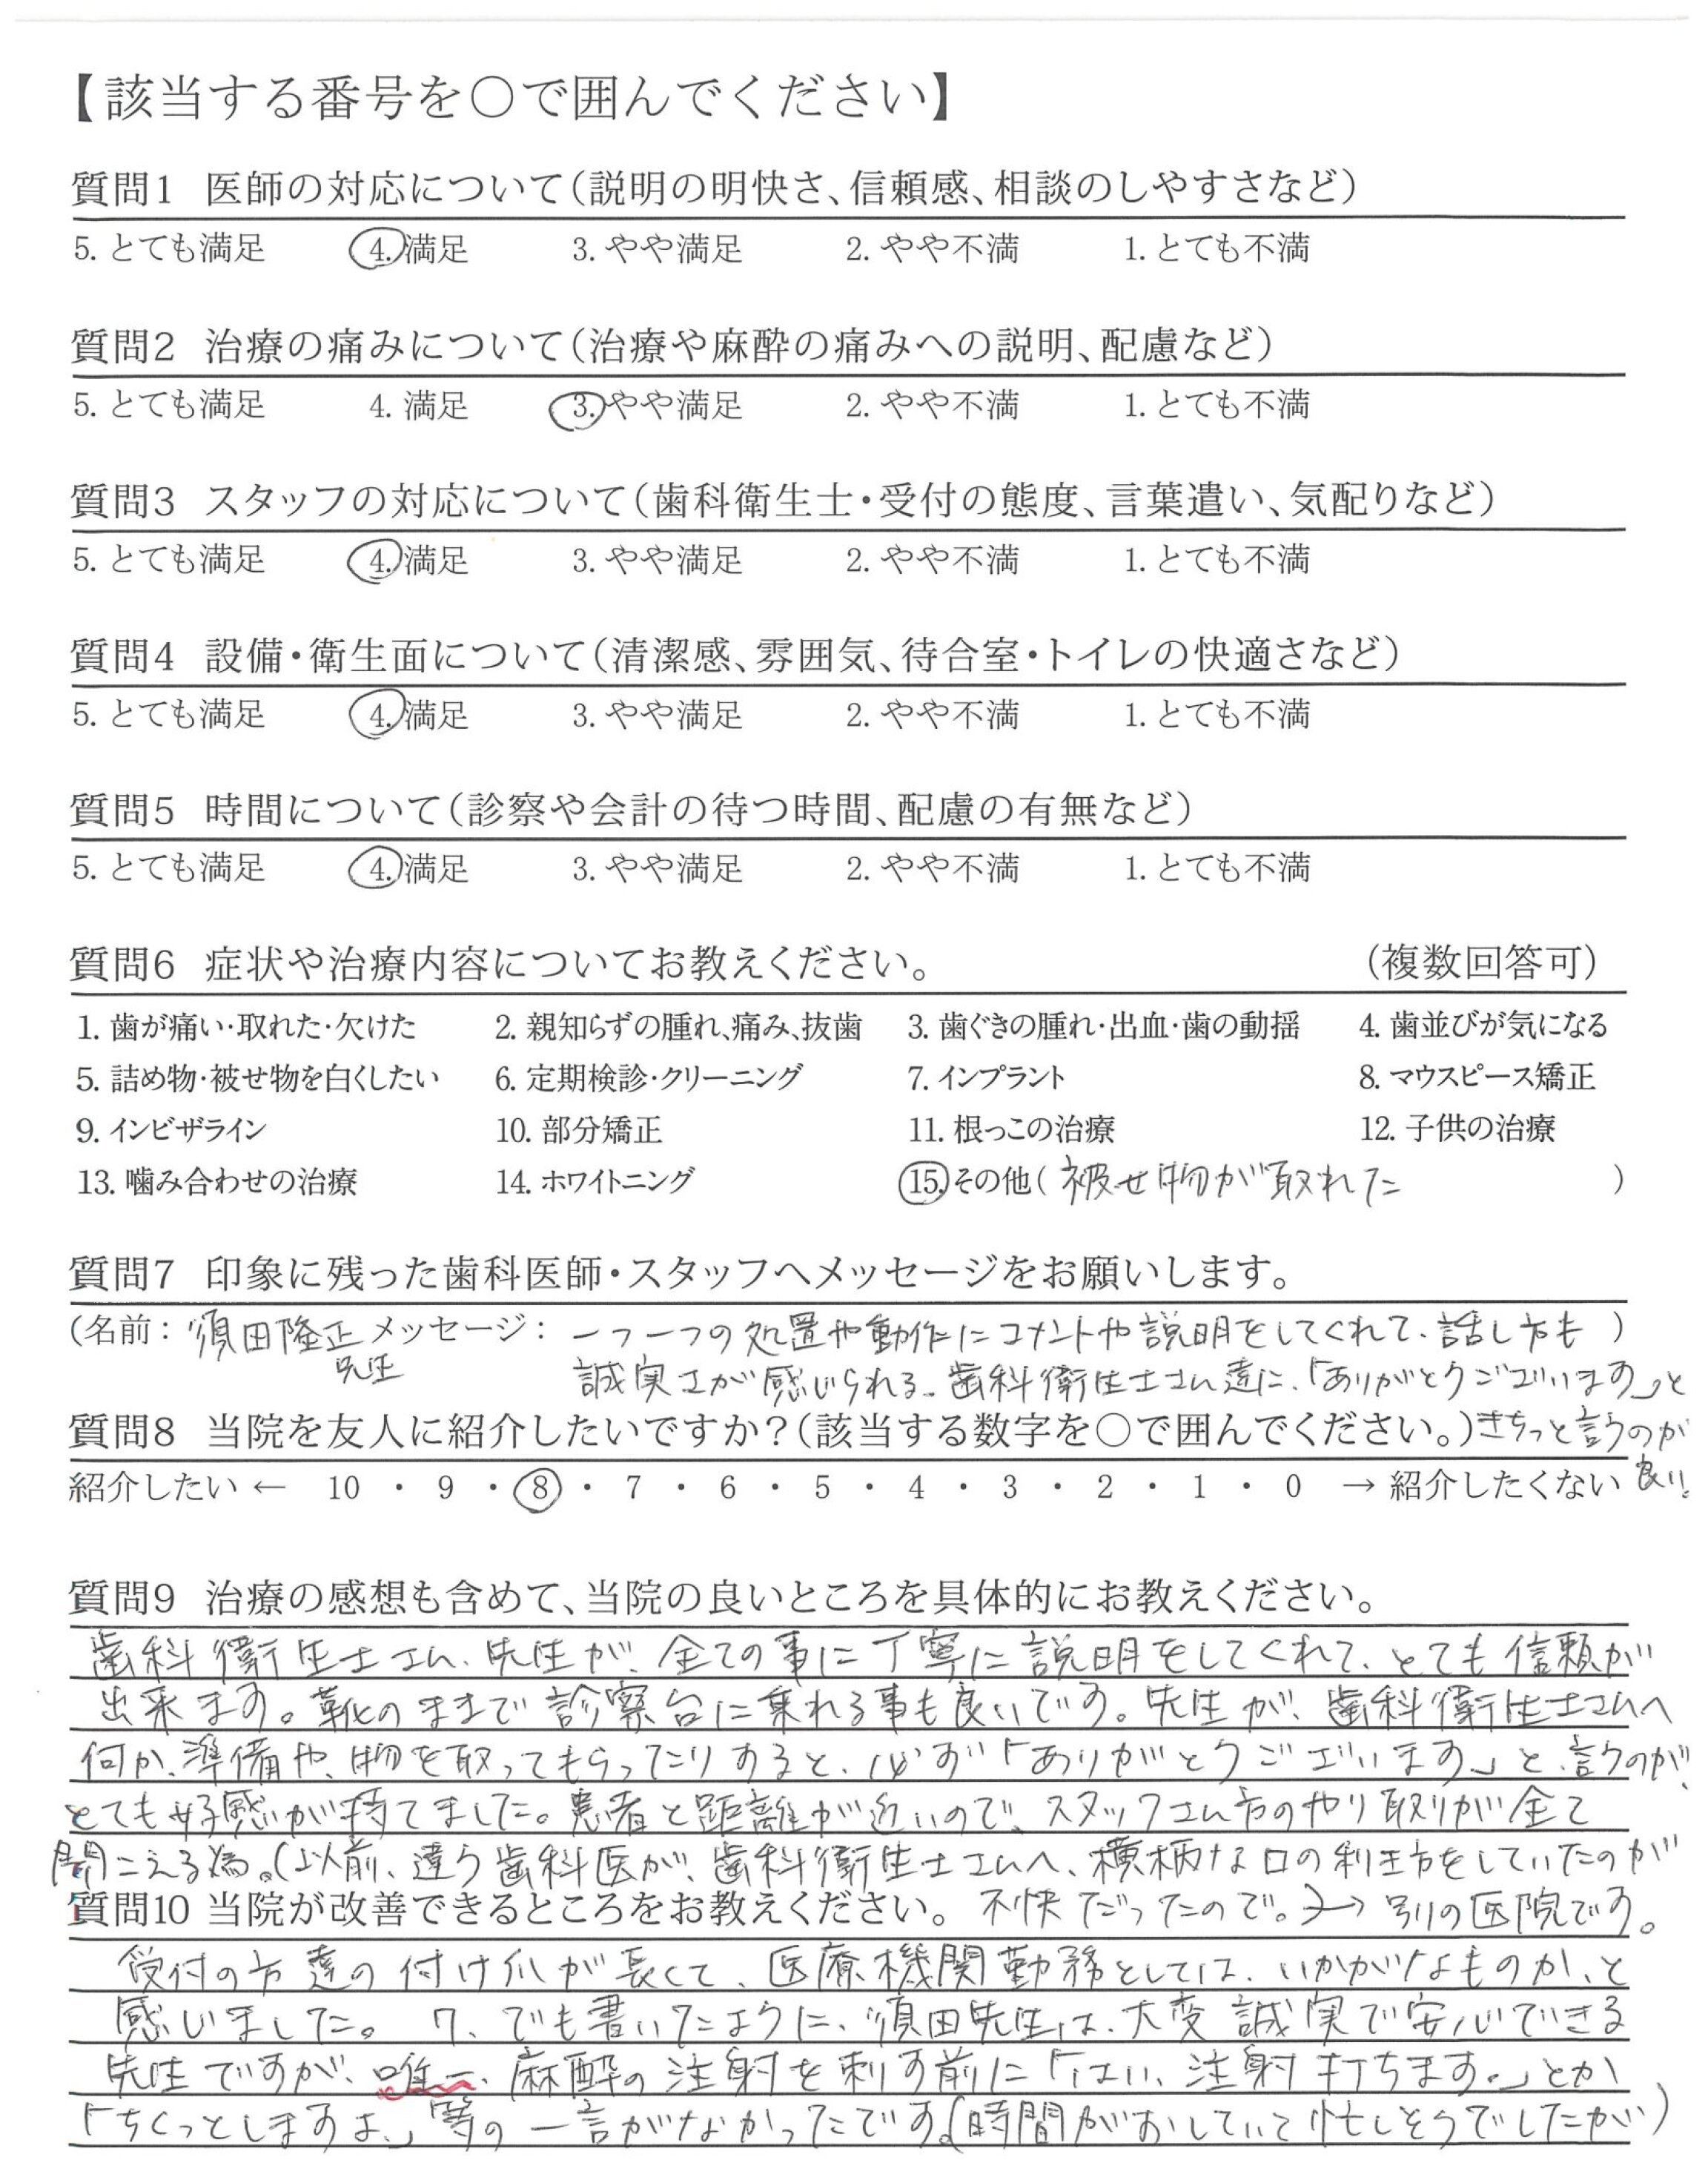 【該当する番号を〇で囲んでください】
質問1 医師の対応について(説明の明快さ、信頼感、相談のしやすさなど)
5. とても満足 4. 満足 3. やや満足 2. やや不満 1. とても不満
質問2 治療の痛みについて(治療や麻酔の痛みへの説明、配慮など)
5. とても満足 4. 満足 3. やや満足 2. やや不満 1. とても不満
質問3 スタッフの対応について(歯科衛生士・受付の態度、言葉遣い、気配りなど)
5. とても満足 4. 満足 3. やや満足 2. やや不満 1. とても不満
質問4 設備・衛生面について(清潔感、雰囲気、待合室・トイレの快適さなど)
5. とても満足 4. 満足 3. やや満足 2. やや不満 1. とても不満
質問5 時間について(診察や会計の待つ時間、配慮の有無など)
5. とても満足 4. 満足 3. やや満足 2. やや不満 1. とても不満
質問6 症状や治療内容についてお教えください。 (複数回答可)
1. 歯が痛い・取れた・欠けた 2. 親知らずの腫れ、痛み、抜歯 3. 歯ぐきの腫れ・出血・歯の動揺 4. 歯並びが気になる
5. 詰め物・被せ物を白くしたい 6. 定期検診・クリーニング 7. インプラント 8. マウスピース矯正
9. インビザライン 10. 部分矯正 11. 根っこの治療 12. 子供の治療
13. 噛み合わせの治療 14. ホワイトニング 15. その他( 被せ物が取れた )
質問7 印象に残った歯科医師・スタッフへメッセージをお願いします。
(名前: 須田隆正先生 メッセージ: 一つ一つの処置や動作にコメントや説明をしてくれて、話し方も )
誠実さが感じられる。歯科衛生士さん達に、「ありがとうございます」と
きちっと言うのが
良い。
質問8 当院を友人に紹介したいですか?(該当する数字を〇で囲んでください。)
紹介したい ← 10 ・ 9 ・ 8 ・ 7 ・ 6 ・ 5 ・ 4 ・ 3 ・ 2 ・ 1 ・ 0 → 紹介したくない
質問9 治療の感想も含めて、当院の良いところを具体的にお教えください。
歯科衛生士さん、先生が、全ての事に丁寧に説明をしてくれて、とても信頼が
出来ます。靴のままで診察台に乗れる事も良いです。先生が、歯科衛生士さんへ
何か、準備や、物を取ってもらったりすると、必ず「ありがとうございます」と、言うのが、
とても好感が持てました。患者と距離が近いので、スタッフさん方のやり取りが全て
聞こえる為。(以前、違う歯科医が、歯科衛生士さんへ、横柄な口の利き方をしていたのが
不快だったので。)→別の医院です。
質問10 当院が改善できるところをお教えください。
受付の方達の付け爪が長くて、医療機関勤務としては、いかがなものか、と
感じました。 7、でも書いたように、須田先生は、大変誠実で安心できる
先生ですが、唯一、麻酔の注射を刺す前に「はい、注射打ちます。」とか
「ちくっとしますよ、」等の一言がなかったです。(時間がおしていて忙しそうでしたが)